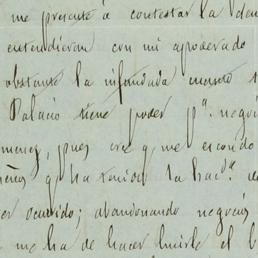 me presenté á contestar la dem
entendieran con mi apoderado
obstante la infundada
Palacio tiene poder pª. negoci
menes, pues cree q. me escondo
q. ha tenido la hacdª. de
er ocurrido; abandonando negocios
me ha de hacer el b